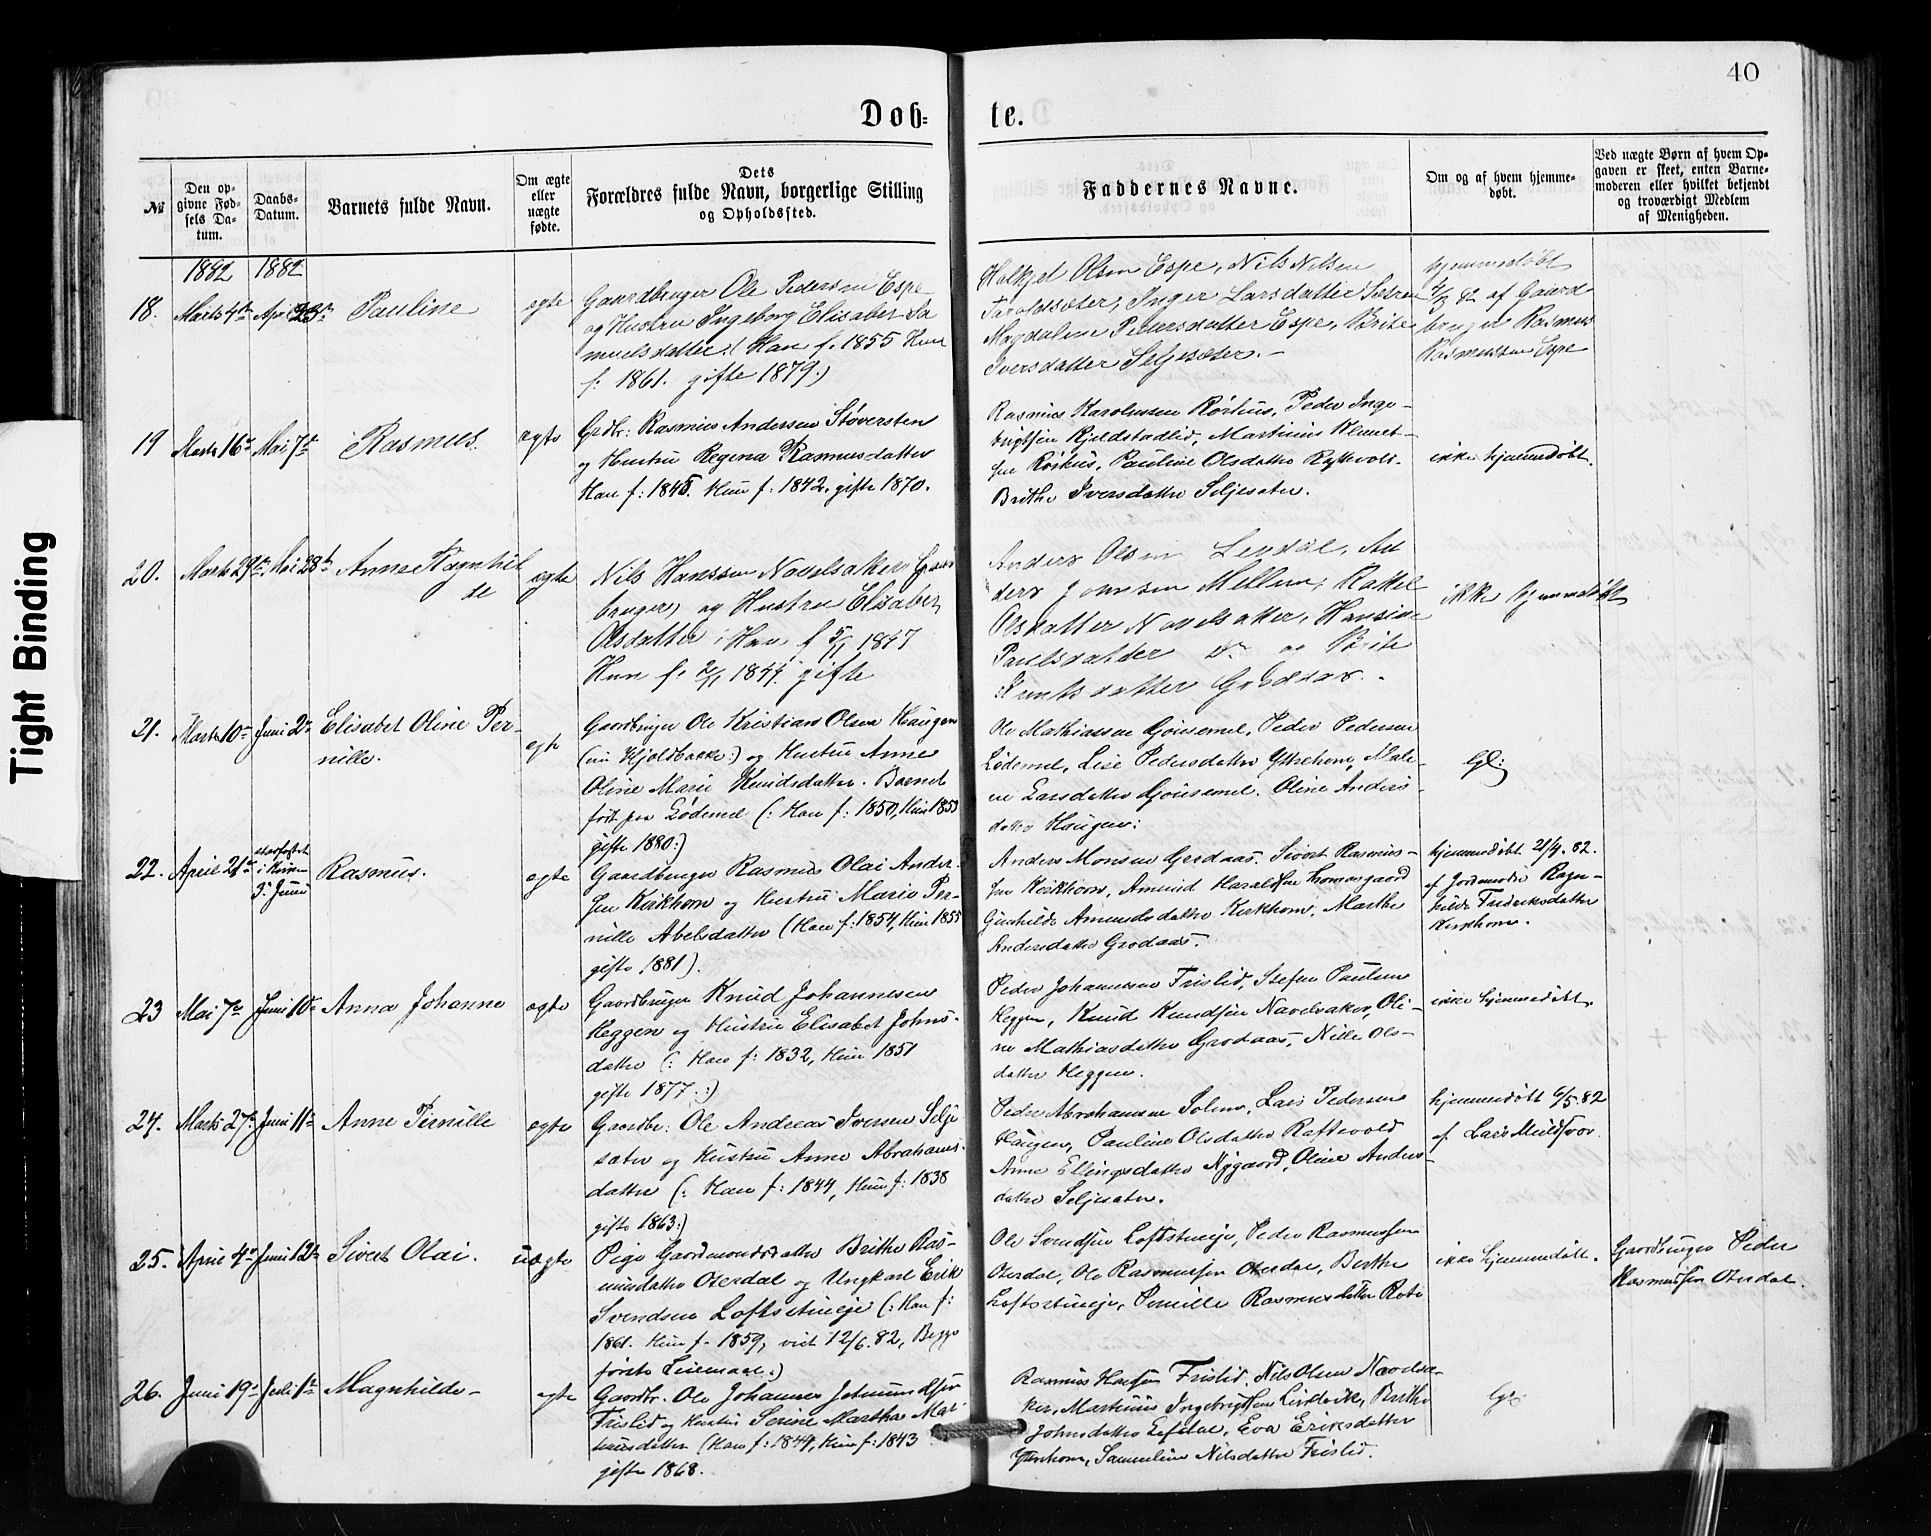 40
Døb=
te.
№
Den op-
givne Fød-
sels Da-
tum.
Daabs-
Datum.
Barnets fulde Navn.
Om ægte
eller
uægte
fødte.
Dets
Forældres fulde Navn, borgerlige Stilling
og Opholdssted.
Faddernes Navne.
Om og af hvem hjemme-
døbt.
Ved uægte Børn af hvem Op-
gaven er skeet, enten Barne-
moderen eller hvilket bekjendt
og troværdigt Medlem
af Menigheden.
1882 1882
18. Marts 4de
Pauline
egte
Gaardbruger Ole Pedersen Espe
og Hustru Ingeborg Elisabet Sa
muelsdatter. (Han f. 1855 Hun
f. 1861. gifte 1879.)
Olsen Espe, Nils Nilsen
Inger Larsdatter
Magdalene Pedersdatter Espe, Brite
Iversdatter Seljesæter.-
hjemmedøbt
af Gaard
bruger Rasmus
Rasmussen Espe
19 Marts 16de Mai 7de
Rasmus.
egte
Grdbr: Rasmus Andersen Støversten
og Hustru Regina Rasmusdatter
Han f: 1845. Hun f: 1842. gifte 1870.
Rasmus Karolussen Rørhus, Peder Inge-
brigtsen Kjeldstadlid, Martinus
sen Rørhus, Pauline Olsdatter
Brithe Iversdatter Seljesæter.
ikke hjemmedøbt.
20. Marts 29de Mai 28de
Anne Ragnhil
de
egte
Nils Hanssen Navelsaker
bruger, og Hustru Elisabet
Olsdatter Han f 5/1 1847
Hun f. 2/11 1844 gifte
Anders Olsen An
ders Jonsen Mellem, Rakel
Olsdatter Navelsaker, Hansine
Paulsdatter do og Brite
datter Grodaas.-
ikke hjemmedøbt
21. Marts 10de Juni 2den
Elisabet Oline Per-
nille.
egte
Gaardbruger Ole Kristian Olsen Haugen
og Hustru Anne
Oline Marie Knudsdatter. Barnet
født paa Lødemel (: Han f: 1850, Hun 1853
gifte 1880:)
Ole Mathiassen Peder Pedersen
Lødemel, Lise Pedersdatter Ytrehorn, Male-
ne Larsdatter Oline Anders
datter Haugen:
Gl:
22. April 21de
i Kirken
Juni
Rasmus.
egte
Gaardbruger Rasmus Olai Ander-
sen Kirkhorn og Hustru Marie Per-
nille Abelsdatter (Han f: 1854, Hun 1855
gifte 1881).
Anders Monsen Grodaas, Sivert Rasmus-
sen Kirkhorn, Amund Haraldsen Tomasgaard
Gunhilde Amundsdatter Kirkhorn, Marthe
Andersdatter Grodaas.
hjemmedøbt 21/4. 82.
af Jordemoder Ragn-
hilde Frederiksdatter
Kirkhorn.
23 Mai 7de Juni 10de
Anna Johanne
egte
Gaardbruger Knud Johannesen
Heggen og Hustru Elisabet Johns-
datter (: Han f: 1832, Hun 1851
gifte 1877 :)
Peder Johannesen Frislid, Stefen Paulsen
Heggen, Knud Knudsen Navelsaker, Oli-
ne Mathiasdatter Grodaas, Nille Ols-
datter Heggen.
ikke hjemmedøbt.
24. Marts 27de Juni 11te
Anne Pernille
egte
Gaardbr: Ole Andreas Iversen Selje
sæter og Hustru Anne Abrahams-
datter (: Han f: 1844, Hun f: 1838
gifte 1863:)
Peder Abrahamsen Lars Pedersen
Haugen, Pauline Olsdatter Raftevold
Anne Ellingsdatter Nygaard, Oline Anders-
datter Seljesæter.
hjemmedøbt 6/5. 82
af Lars Muldsvor.
25. April 4de Juni 12te
Sivert Olai.
uægte
Pige Gaardmandsdatter Brithe Ras-
musdatter Oterdal og Ungkarl Erik
Svendsen Loftsstueeje (: Han f:
1861. Hun f. 1859, viet 12/6. 82, Begges
første Leiermaal:)
Ole Svendsen Loftstueeje, Peder Rasmussen
Oterdal, Ole Rasmussen Oterdal, Berthe
Loftsstueeje, Pernille Rasmusdatter
ikke hjemmedøbt.
Gaardbruger Peder
Rasmussen Oterdal.
26. Juni 19de Juli 1ste
Magnhilde-
egte
Gaardbr. Ole Johannes
Frislid og Hustru Serine Martha Mat-
hiasdatter (Han f: 1844, Hun f: 1843
gifte 1868.
Rasmus Hansen Frislid, Nils Olsen Navelsa-
ker, Martinus Ingebrigtsen Brithe
Johnsdatter Eva Eriksdatter
Samueline Nilsdatter Frislid.
Tight Binding